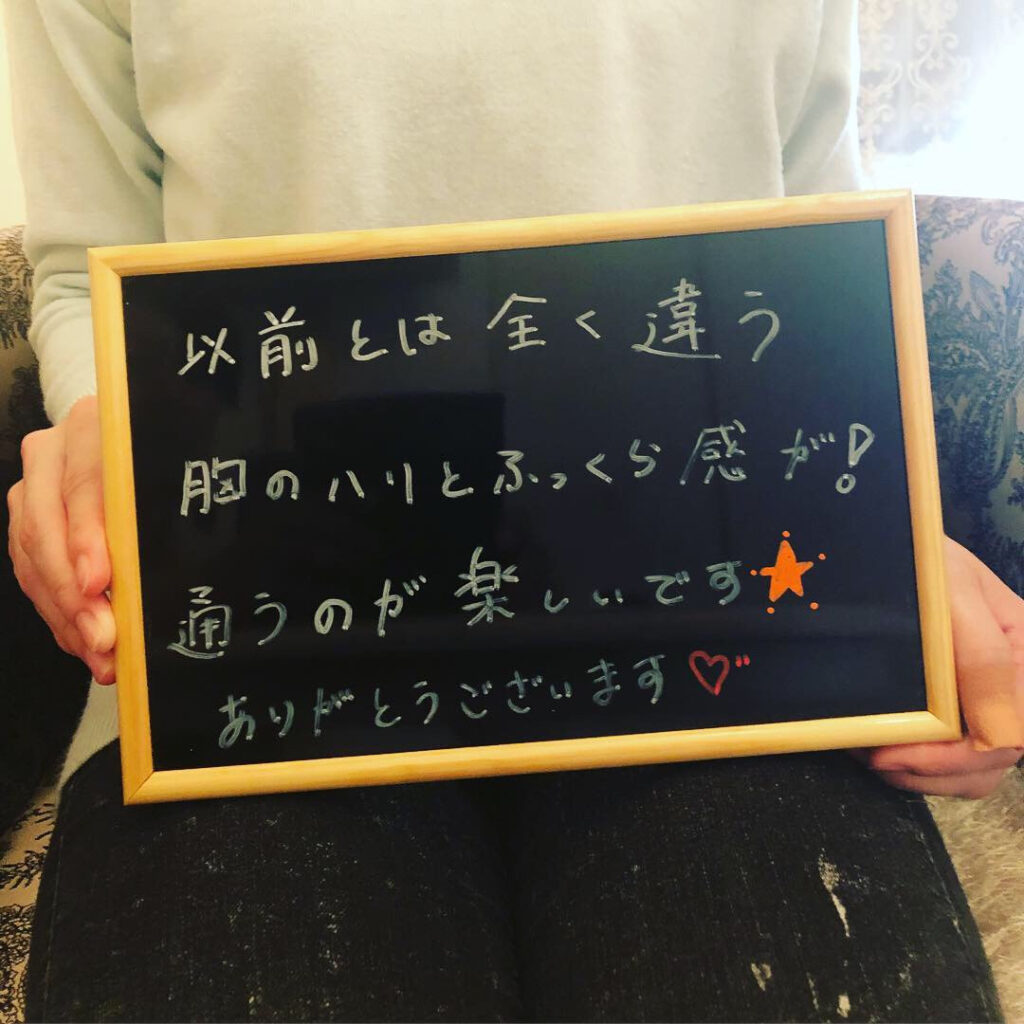 以前とは全く違う
胸のハリとふっくら感が!
通うのが楽しいです★
ありがとうございます♡"